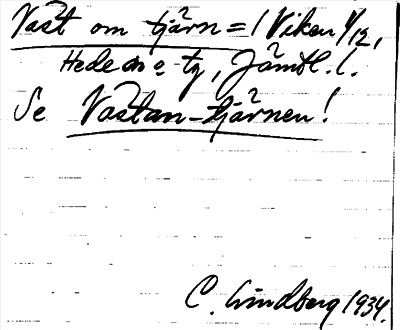 Väst om tjärn = / Viken 1/12,
Hede sn o. tg, Jämtl. l.
Se Västan-tjärnen!
C. Lindberg 1934.